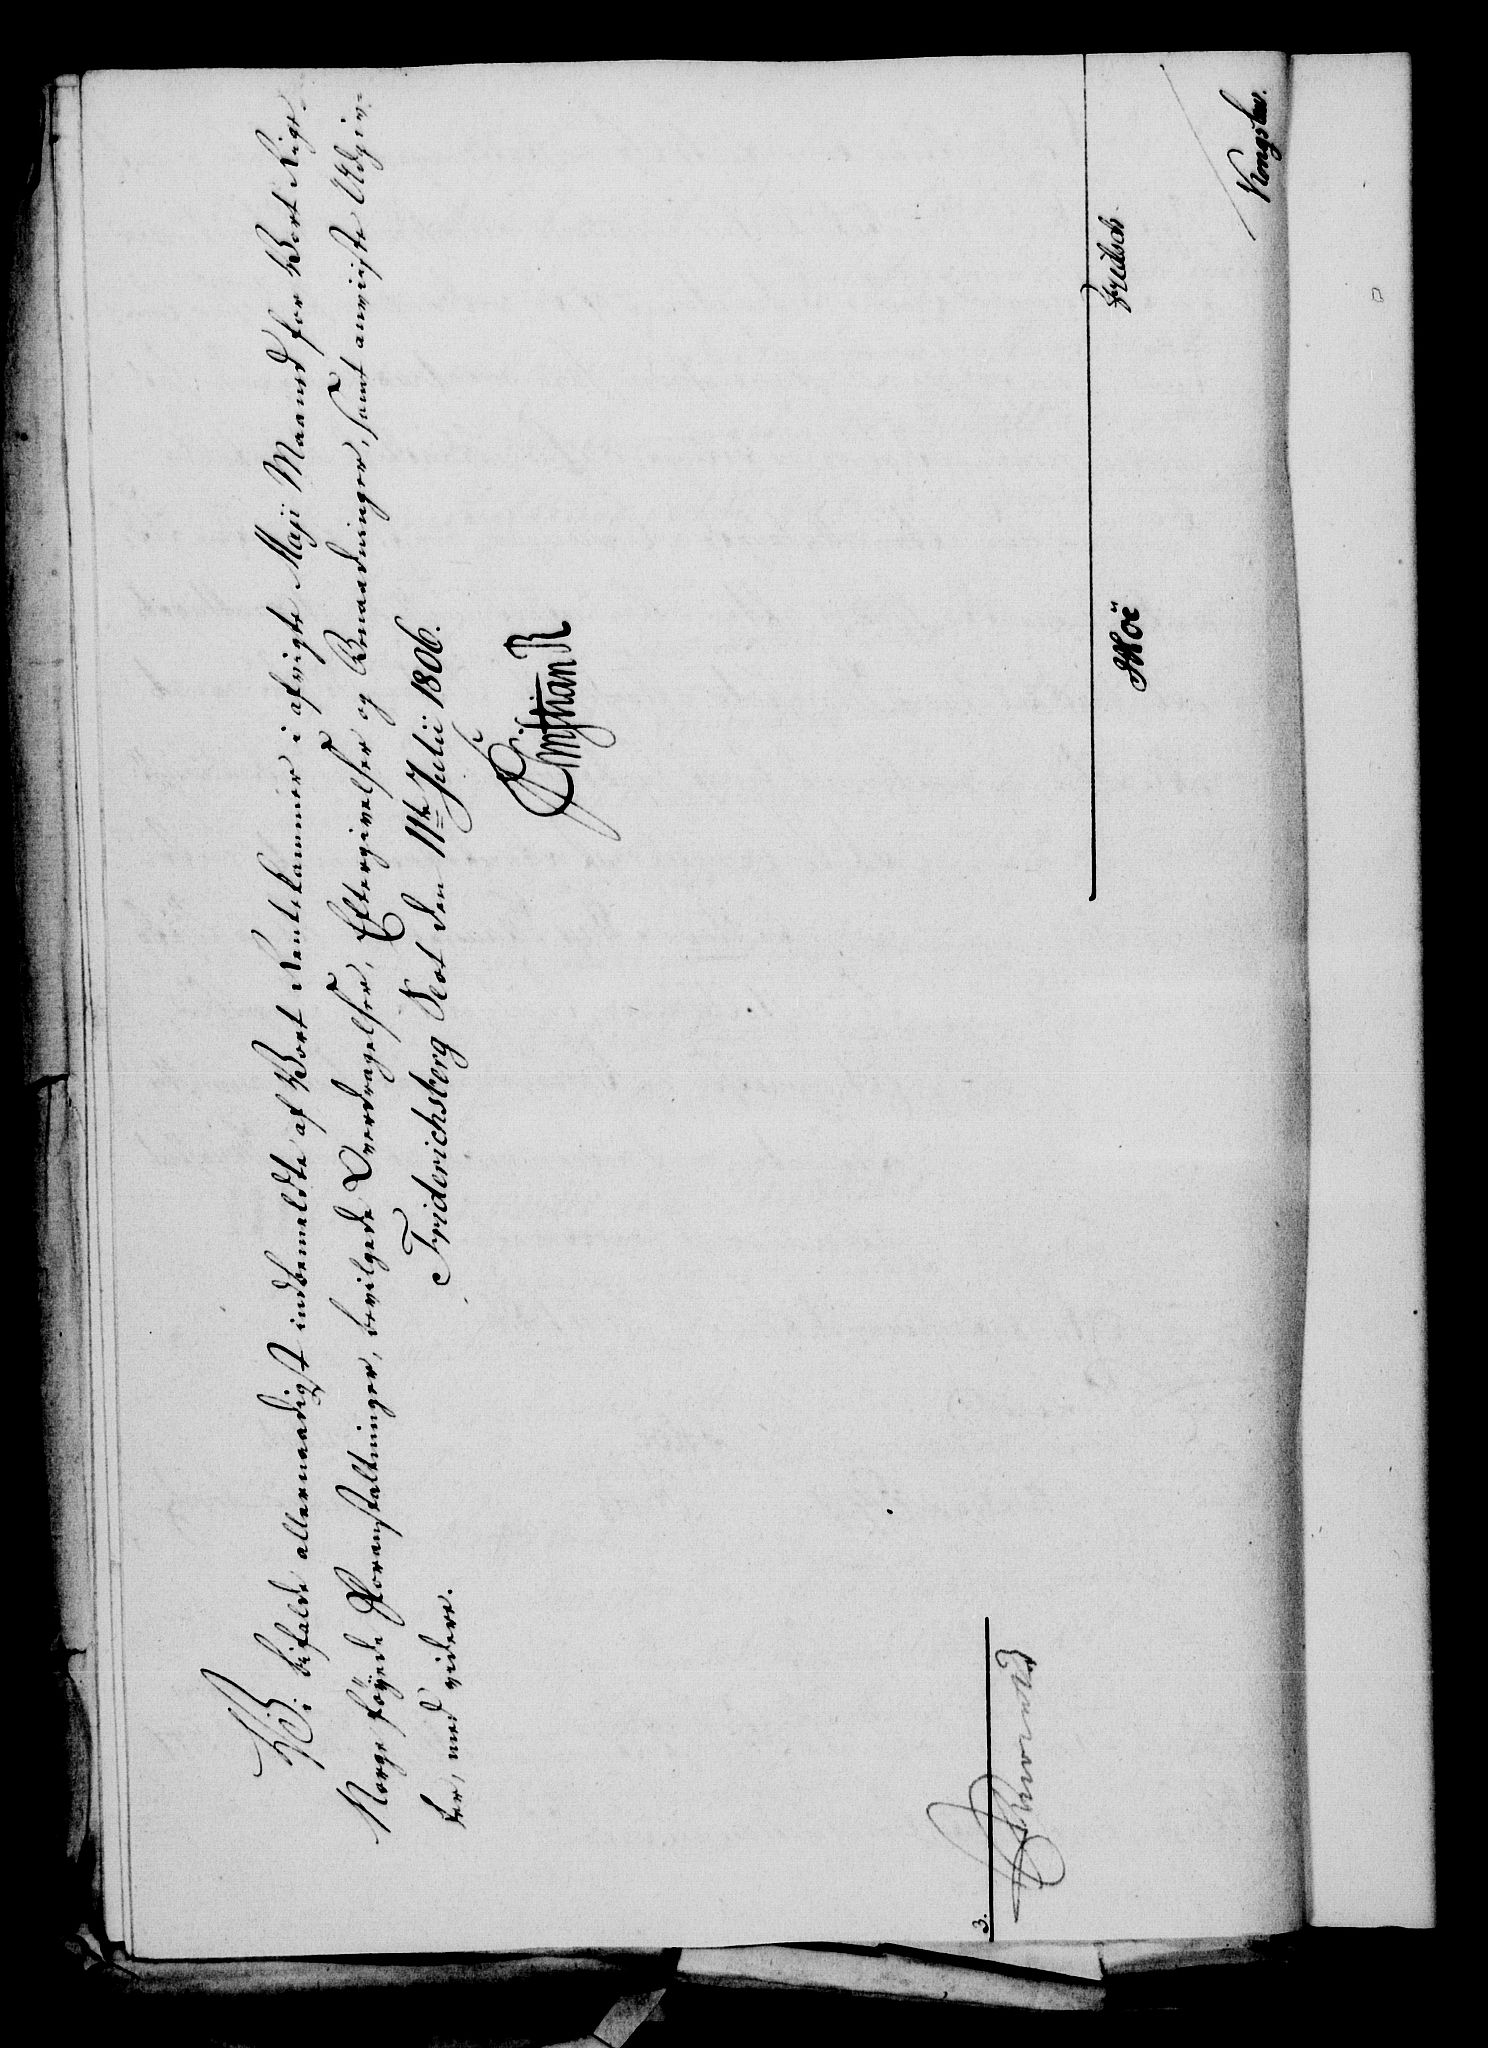 Vi bifalde allernaadigst indbemeldte af Vort Rentekammer i afvigte Maji Maaned for Vort Rige
Norge føyede Foranstaltninger, bevilgede Overdragelser, Eftergivelser og Benaadninger, samt anviiste Udgiv-
ter, med videre.
Friderichsberg Slot den 11te Julii 1806.
Christian R
3.
Høë
Frydsch
Kongslew.